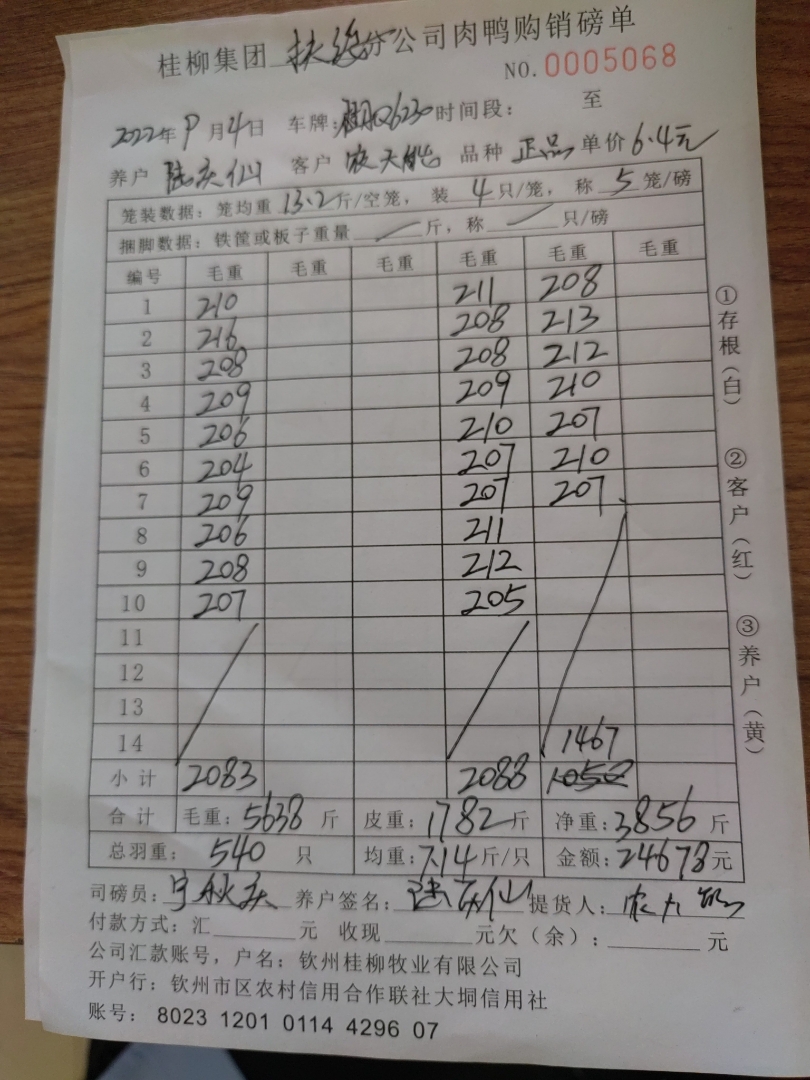 桂柳集团 扶绥分公司肉鸭购销磅单
NO. 0005068
2022年9月4日 车牌: Q6230 时间段: 至
养户 陆庆仙 客户 农天能 品种 正品 单价6.4元
笼装数据: 笼均重 13.2斤/空笼, 装 4只/笼, 称 5笼/磅
捆脚数据: 铁筐或板子重量 斤, 称 只/磅
编号 毛重 毛重 毛重 毛重 毛重 毛重
1 210 211 208
2 216 208 213
3 208 208 212
4 209 209 210
5 206 210 207
6 204 207 210
7 209 207 207
8 206 211
9 208 212
10 207 205
11
12
13
14 1467
小计 2083 2088 1058
合计 毛重: 5638 斤 皮重: 1782斤 净重: 3856 斤
总羽重: 540 只 均重: 7.14斤/只 金额: 24678元
司磅员: 宁秋庆 养户签名: 陆庆仙 提货人: 农天能
付款方式: 汇 元 收现 元欠(余): 元
公司汇款账号, 户名: 钦州桂柳牧业有限公司
开户行: 钦州市区农村信用合作联社大垌信用社
账号: 8023 1201 0114 4296 07
①存根(白)
②客户(红)
③养户(黄)